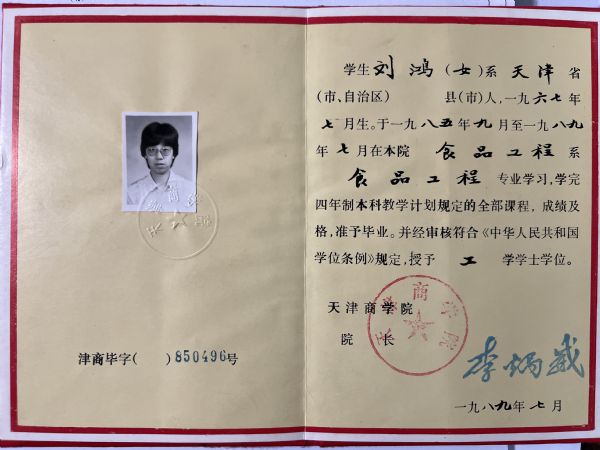 津商毕字(    )850496号
学生刘鸿(女)系天津省
(市、自治区)    县(市)人,一九六七年
七月生。于一九八五年九月至一九八九
年七月在本院食品工程系
食品工程专业学习,学完
四年制本科教学计划规定的全部课程,成绩及
格,准予毕业。并经审核符合《中华人民共和国
学位条例》规定,授予工学学士学位。
天津商学院
院长
李炳威
天津商学院
一九八九年七月